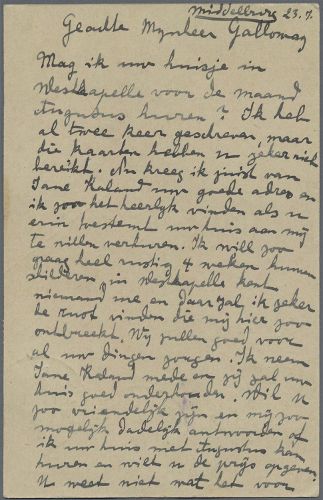 Middelburg 23.7.
Geachte Mynheer Galloway
Mag ik uw huisje in
Westkapelle voor de maand
Augustus huren? Ik heb
al twee keer geschreven, maar
die kaarten hebben u zeker niet
bereikt. Nu kreeg ik juist van
Jane Kaland uw goede adres en
ik zoo het heerlyk vinden als u
erin toestemt uw huis aan my
te willen verhuren. Ik will zoo
graag heel rustig 4 weken kunnen
schilderen, in Westkapelle kent
niemand me en daar zal ik zeker
de rust vinden die my hier zoo
ontbreekt. Wy zullen goed voor
al uw dingen zorgen. Ik neem
Jane Kaland mede en zy zal uw
huis goed onderhouden. Wil u
zoo vriendelyk zyn en my zoo
mogelyk dadelyk antwoorden of
ik uw huis met Augustus kan
huren en wilt u de prys opgeven.
U weet niet wat het voor